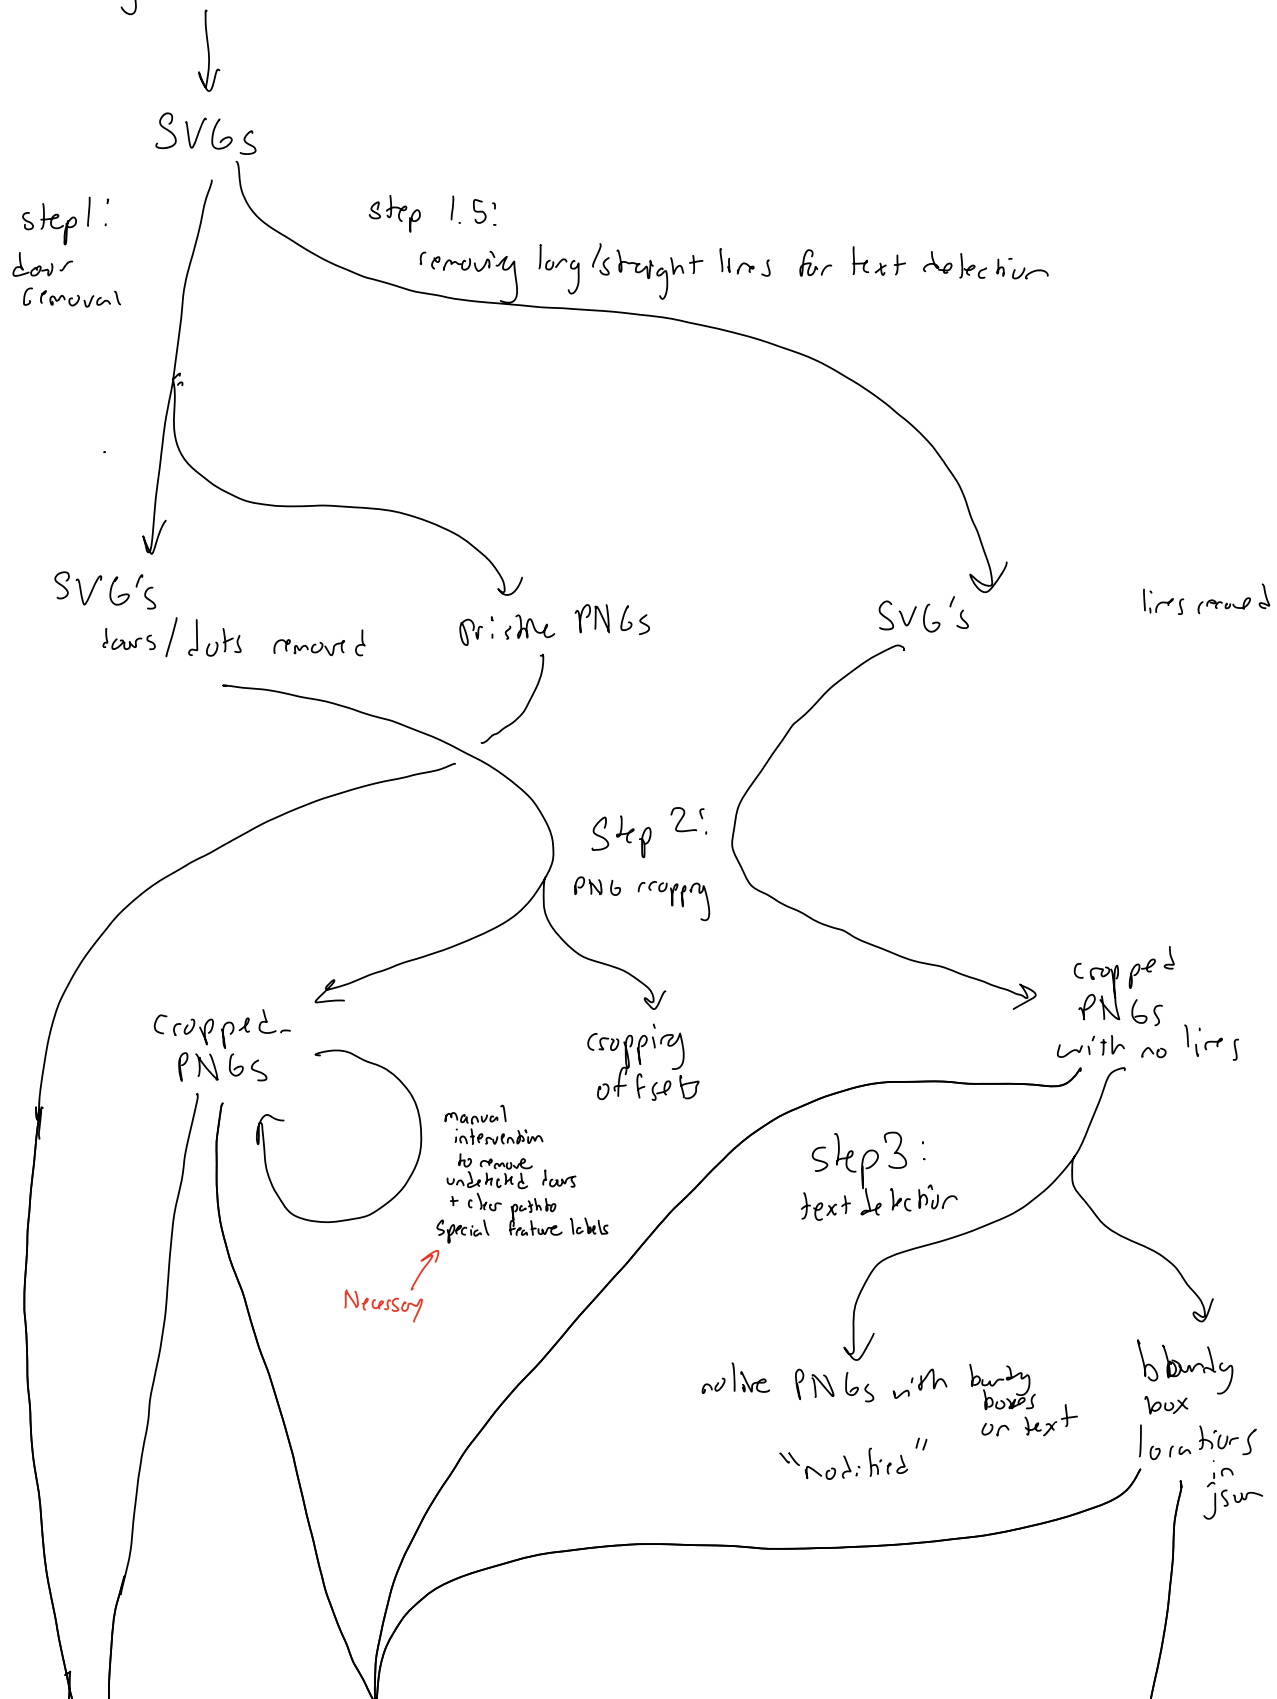 SVGs
step 1:
door
removal
step 1.5:
removing long/straight lines for text detection
SVG's
doors/dots removed
pristine PNGs
SVG's
lines removed
Step 2:
PNG cropping
cropped
PNGs
with no lines
Cropped
PNGs
cropping
offsets
manual
intervention
to remove
undetected doors
+ clear path to
special feature labels
Necessary
step 3:
text detection
noline PNGs with bounding
boxes
on text
"modified"
bounding
box
locations
in
json